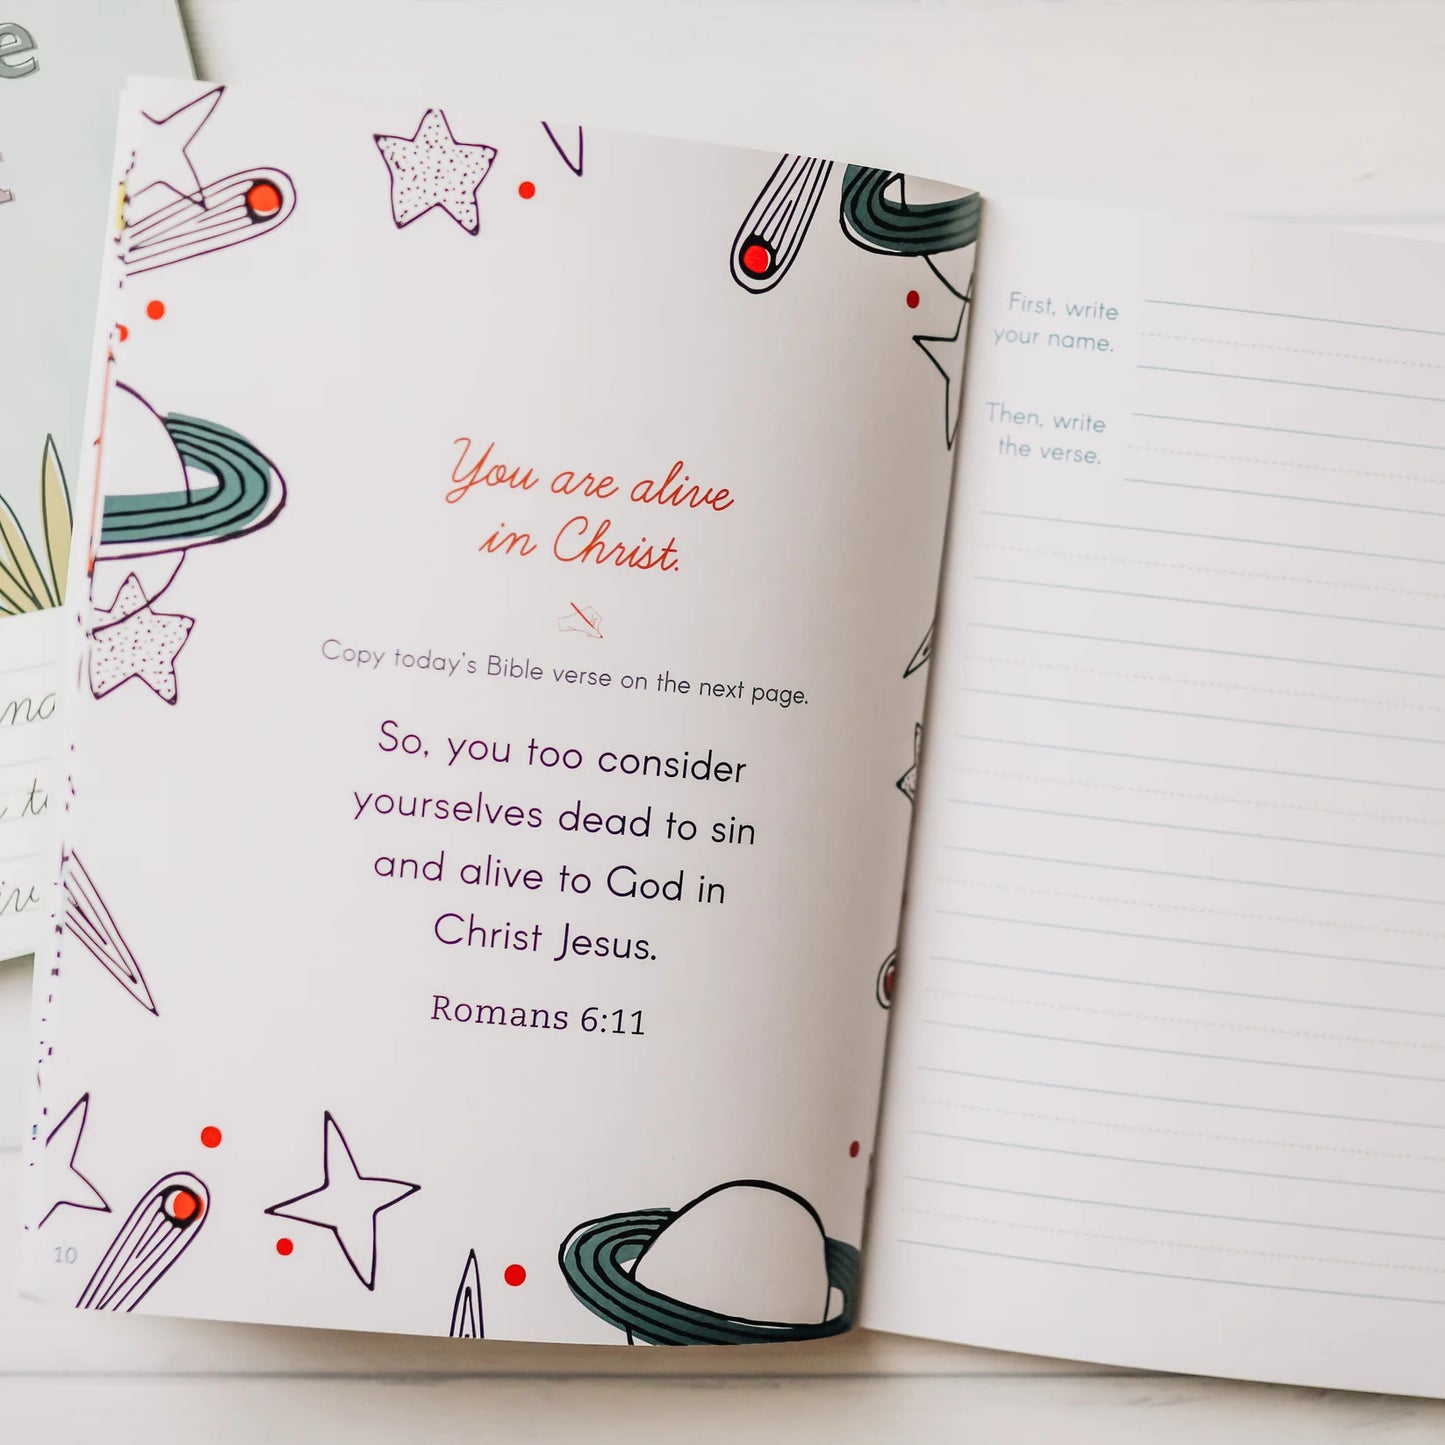 You are alive
in Christ.
Copy today's Bible verse on the next page.
So, you too consider
yourselves dead to sin
and alive to God in
Christ Jesus.
Romans 6:11
10
First, write
your name.
Then, write
the verse.